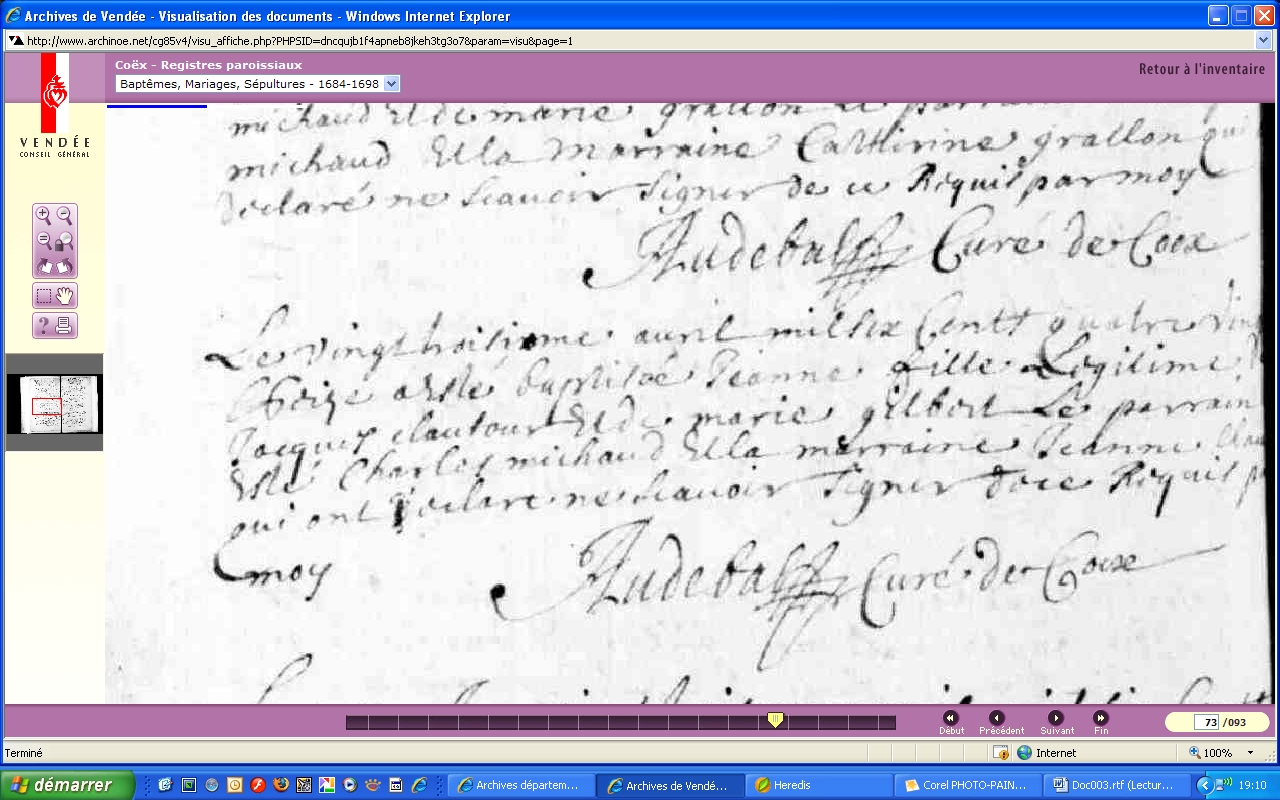 Archives de Vendée - Visualisation des documents - Windows Internet Explorer
http://www.archinoe.net/cg85v4/visu_affiche.php?PHPSID=dncqujb1f4apneb8jkeh3tg3o7&param=visu&page=1
Coëx - Registres paroissiaux
Retour à l'inventaire
Baptêmes, Mariages, Sépultures - 1684-1698
VENDÉE
CONSEIL GÉNÉRAL
michaud Et de marie grallon Le parrain
michaud Et la marraine Catherine grallon qui
declaré ne scavoir signer de ce Requis par moy
Audebal Curé de Coex
Le vingt troisieme avril mil six Centt quatre ving
Treize a este baptisée Jeanne fille Legitime
Jacques clautour Et de marie gilbert Le parrain
Esté Charles michaud Et la marraine Jeanne
qui ont declare ne scavoir signer de ce Requis p
moy
Audebal Curé de Coex
Début
Précédent
Suivant
Fin
73 /093
Terminé
Internet
100%
démarrer
Archives départem...
Archives de Vendé...
Heredis
Corel PHOTO-PAIN...
Doc003.rtf (Lectur...
19:10